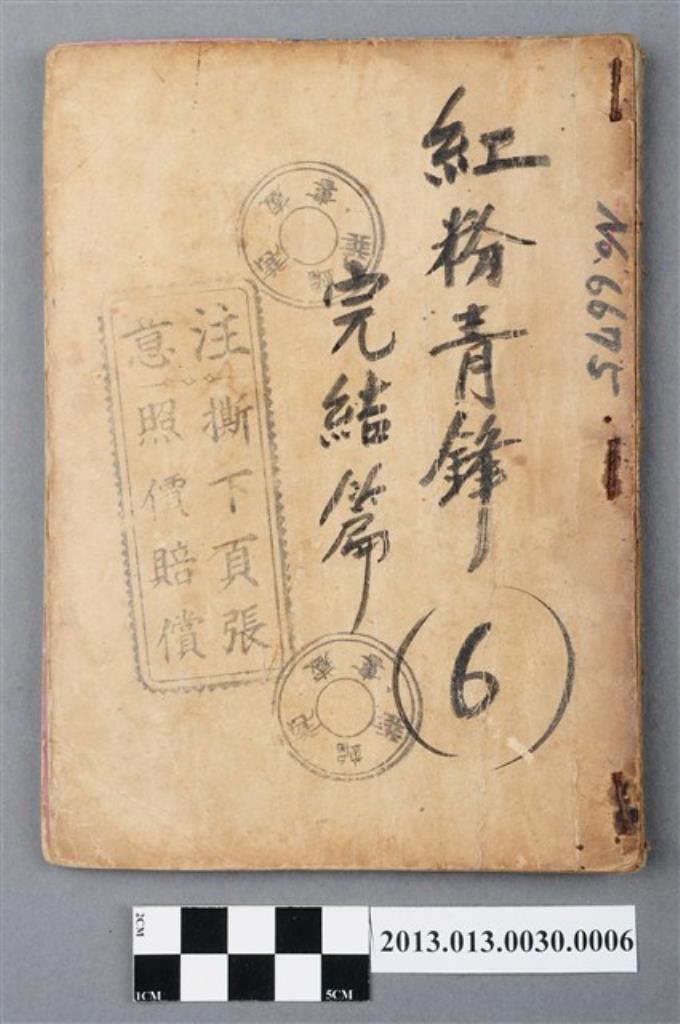 紅粉青鋒
(6)
完結篇
No.6675.
注意
撕下頁張
照價賠償
2013.013.0030.0006
2CM
1CM
5CM